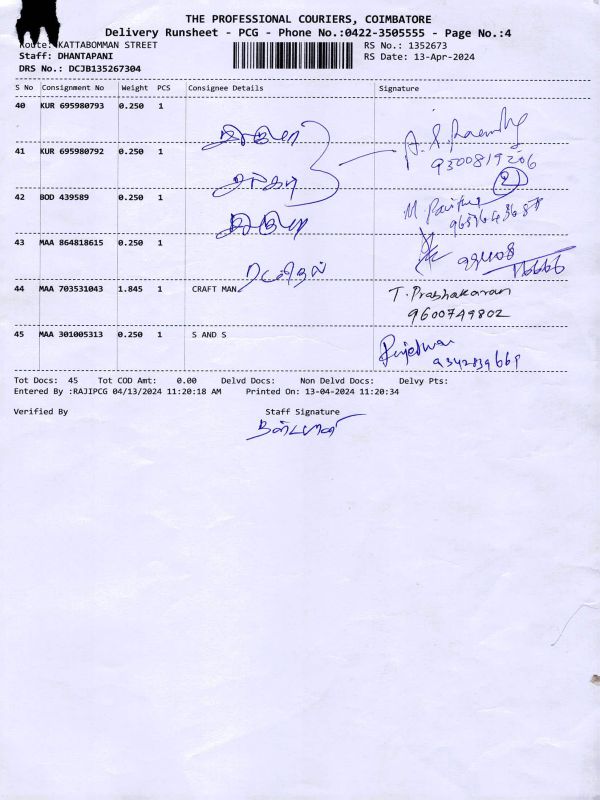 THE PROFESSIONAL COURIERS, COIMBATORE
Delivery Runsheet - PCG - Phone No.:0422-3505555 - Page No.:4
Route: KATTABOMMAN STREET
RS No.: 1352673
Staff: DHANTAPANI
RS Date: 13-Apr-2024
DRS No.: DCJB135267304
S No Consignment No Weight PCS Consignee Details Signature
40 KUR 695980793 0.250 1
41 KUR 695980792 0.250 1
9300819206
2
42 BOD 439589 0.250 1
43 MAA 864818615 0.250 1
44 MAA 703531043 1.845 1 CRAFT MAN
T. Prabhakaran
9600749802
45 MAA 301005313 0.250 1 S AND S
9342839669
Tot Docs: 45 Tot COD Amt: 0.00 Delvd Docs: Non Delvd Docs: Delvy Pts:
Entered By :RAJIPCG 04/13/2024 11:20:18 AM Printed On: 13-04-2024 11:20:34
Verified By Staff Signature